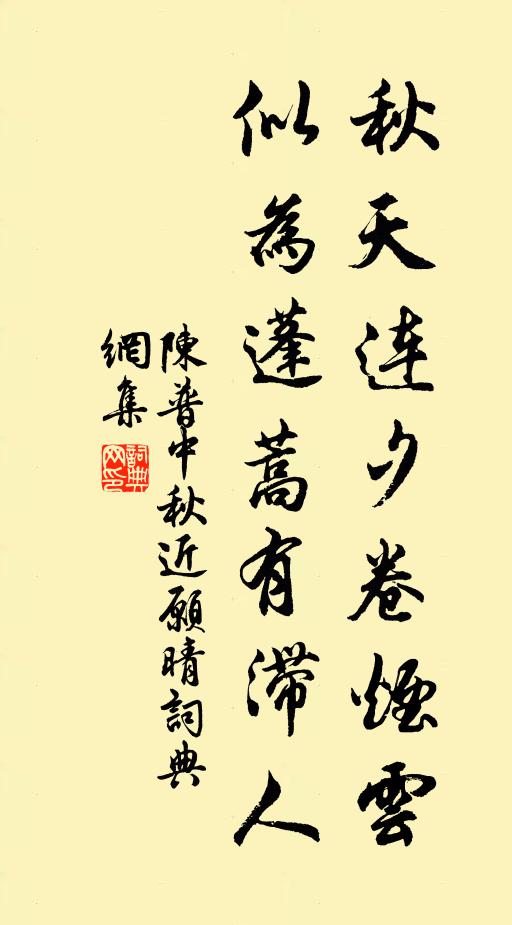 秋天連夕卷煙雲
似為蓬蒿有滯人
陳普中秋近願晴詞典
網集
詞典網印